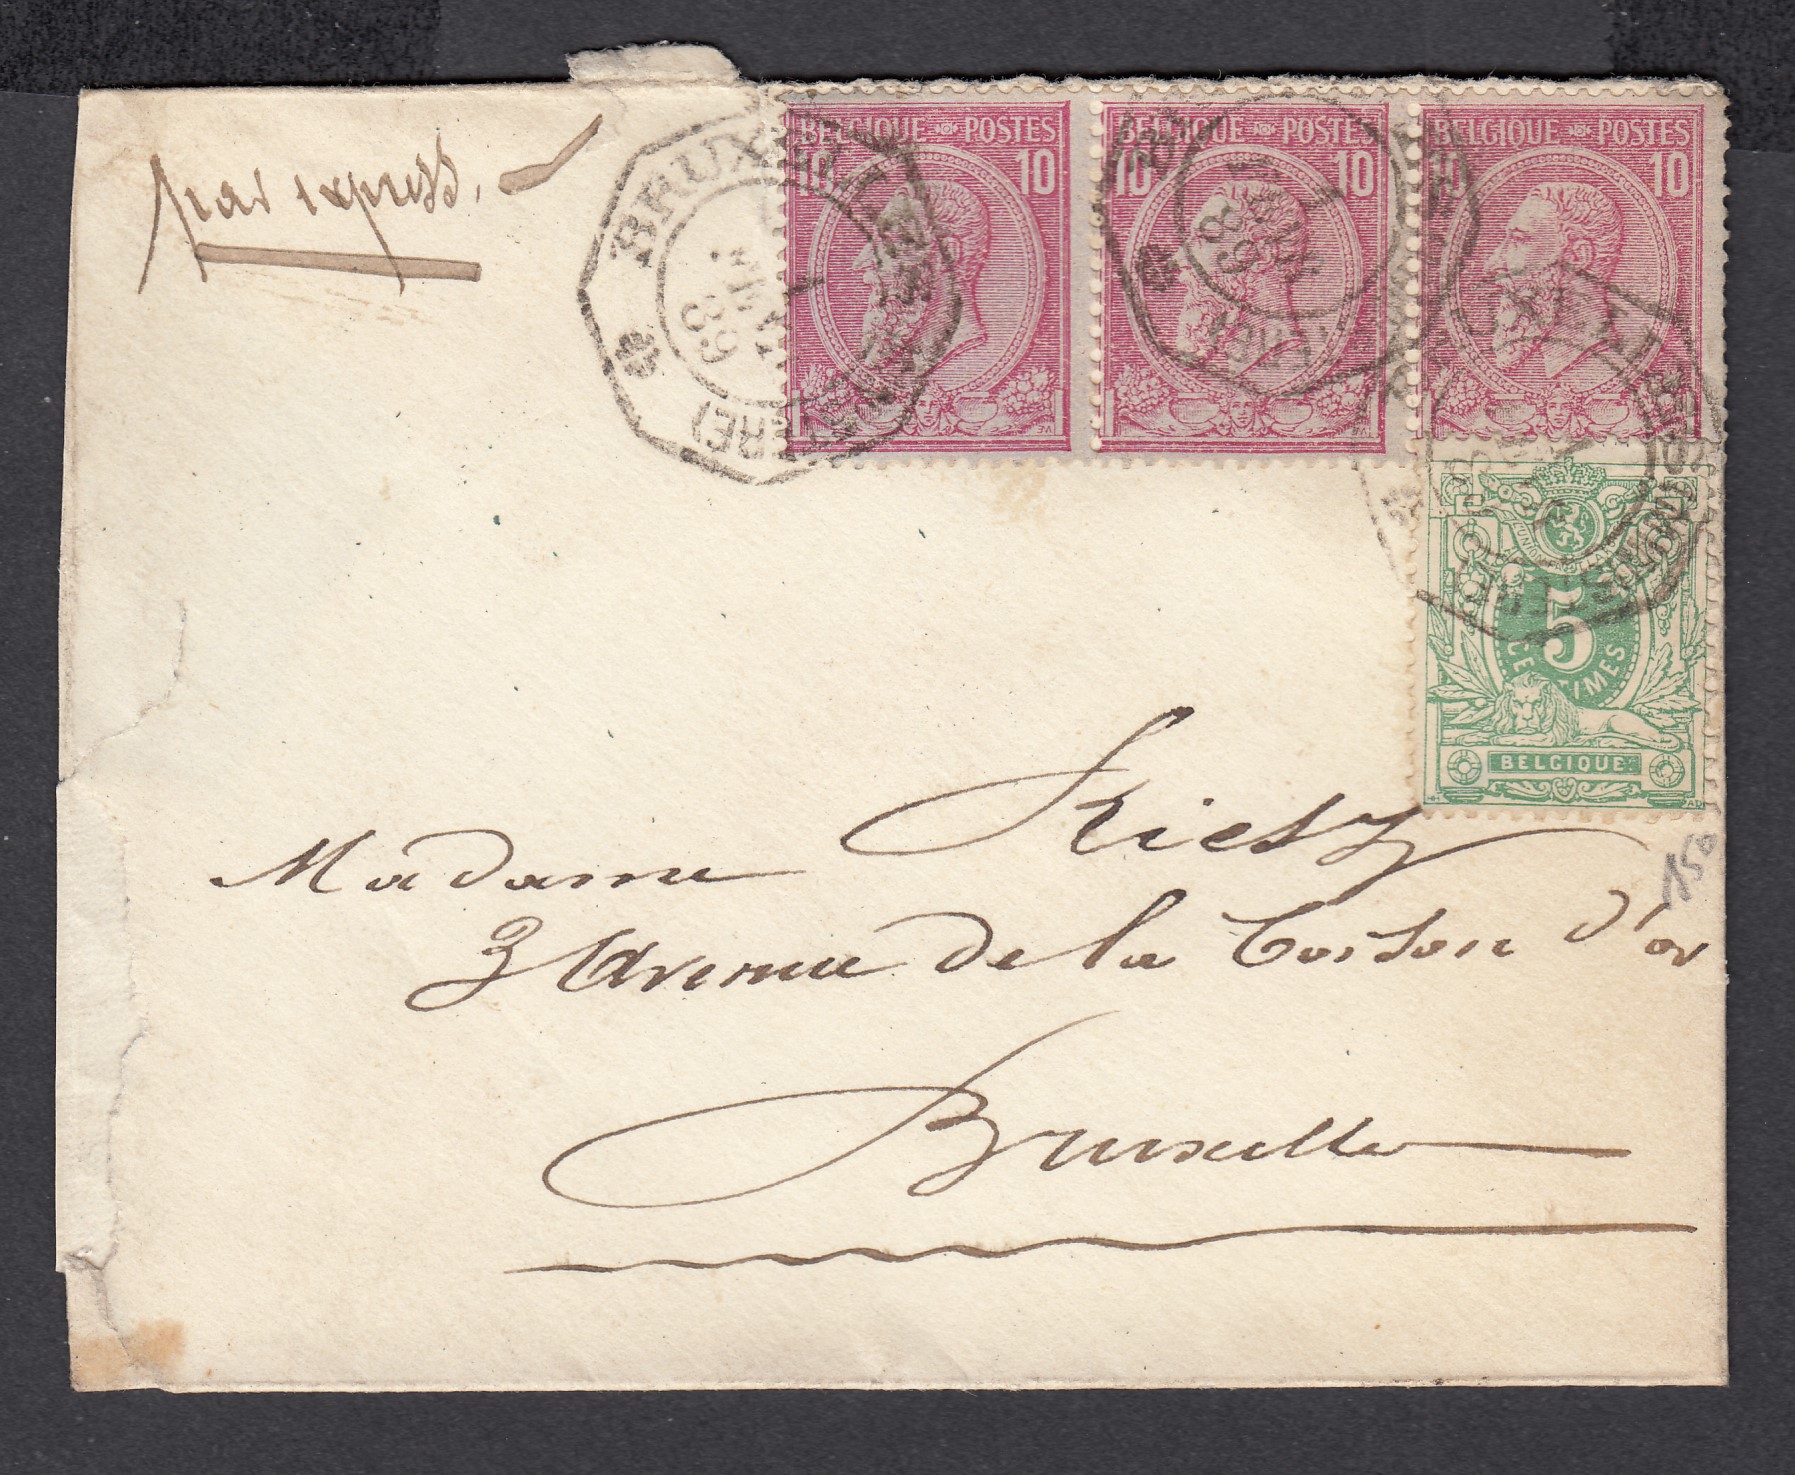 par express.
BELGIQUE POSTES
10 10
BELGIQUE POSTES
10 10
BELGIQUE POSTES
10 10
BRUXELLES
89
89
5
CENTIMES
BELGIQUE
Madame Riesz
3 Avenue de la Toison d'or
Bruxelles